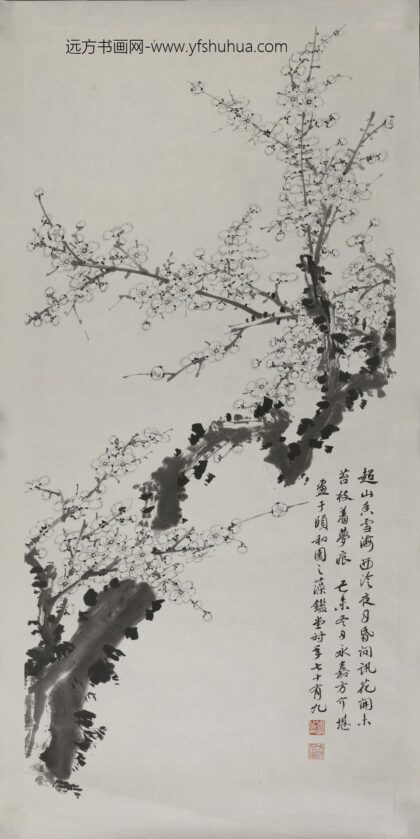 远方书画网-www.yfshuhua.com
超山香雪海西泠夜月昏问讯花開未
苔枝着夢痕 己未冬月永嘉方介堪
畫于頤和園之藻鑑堂时年七十有九